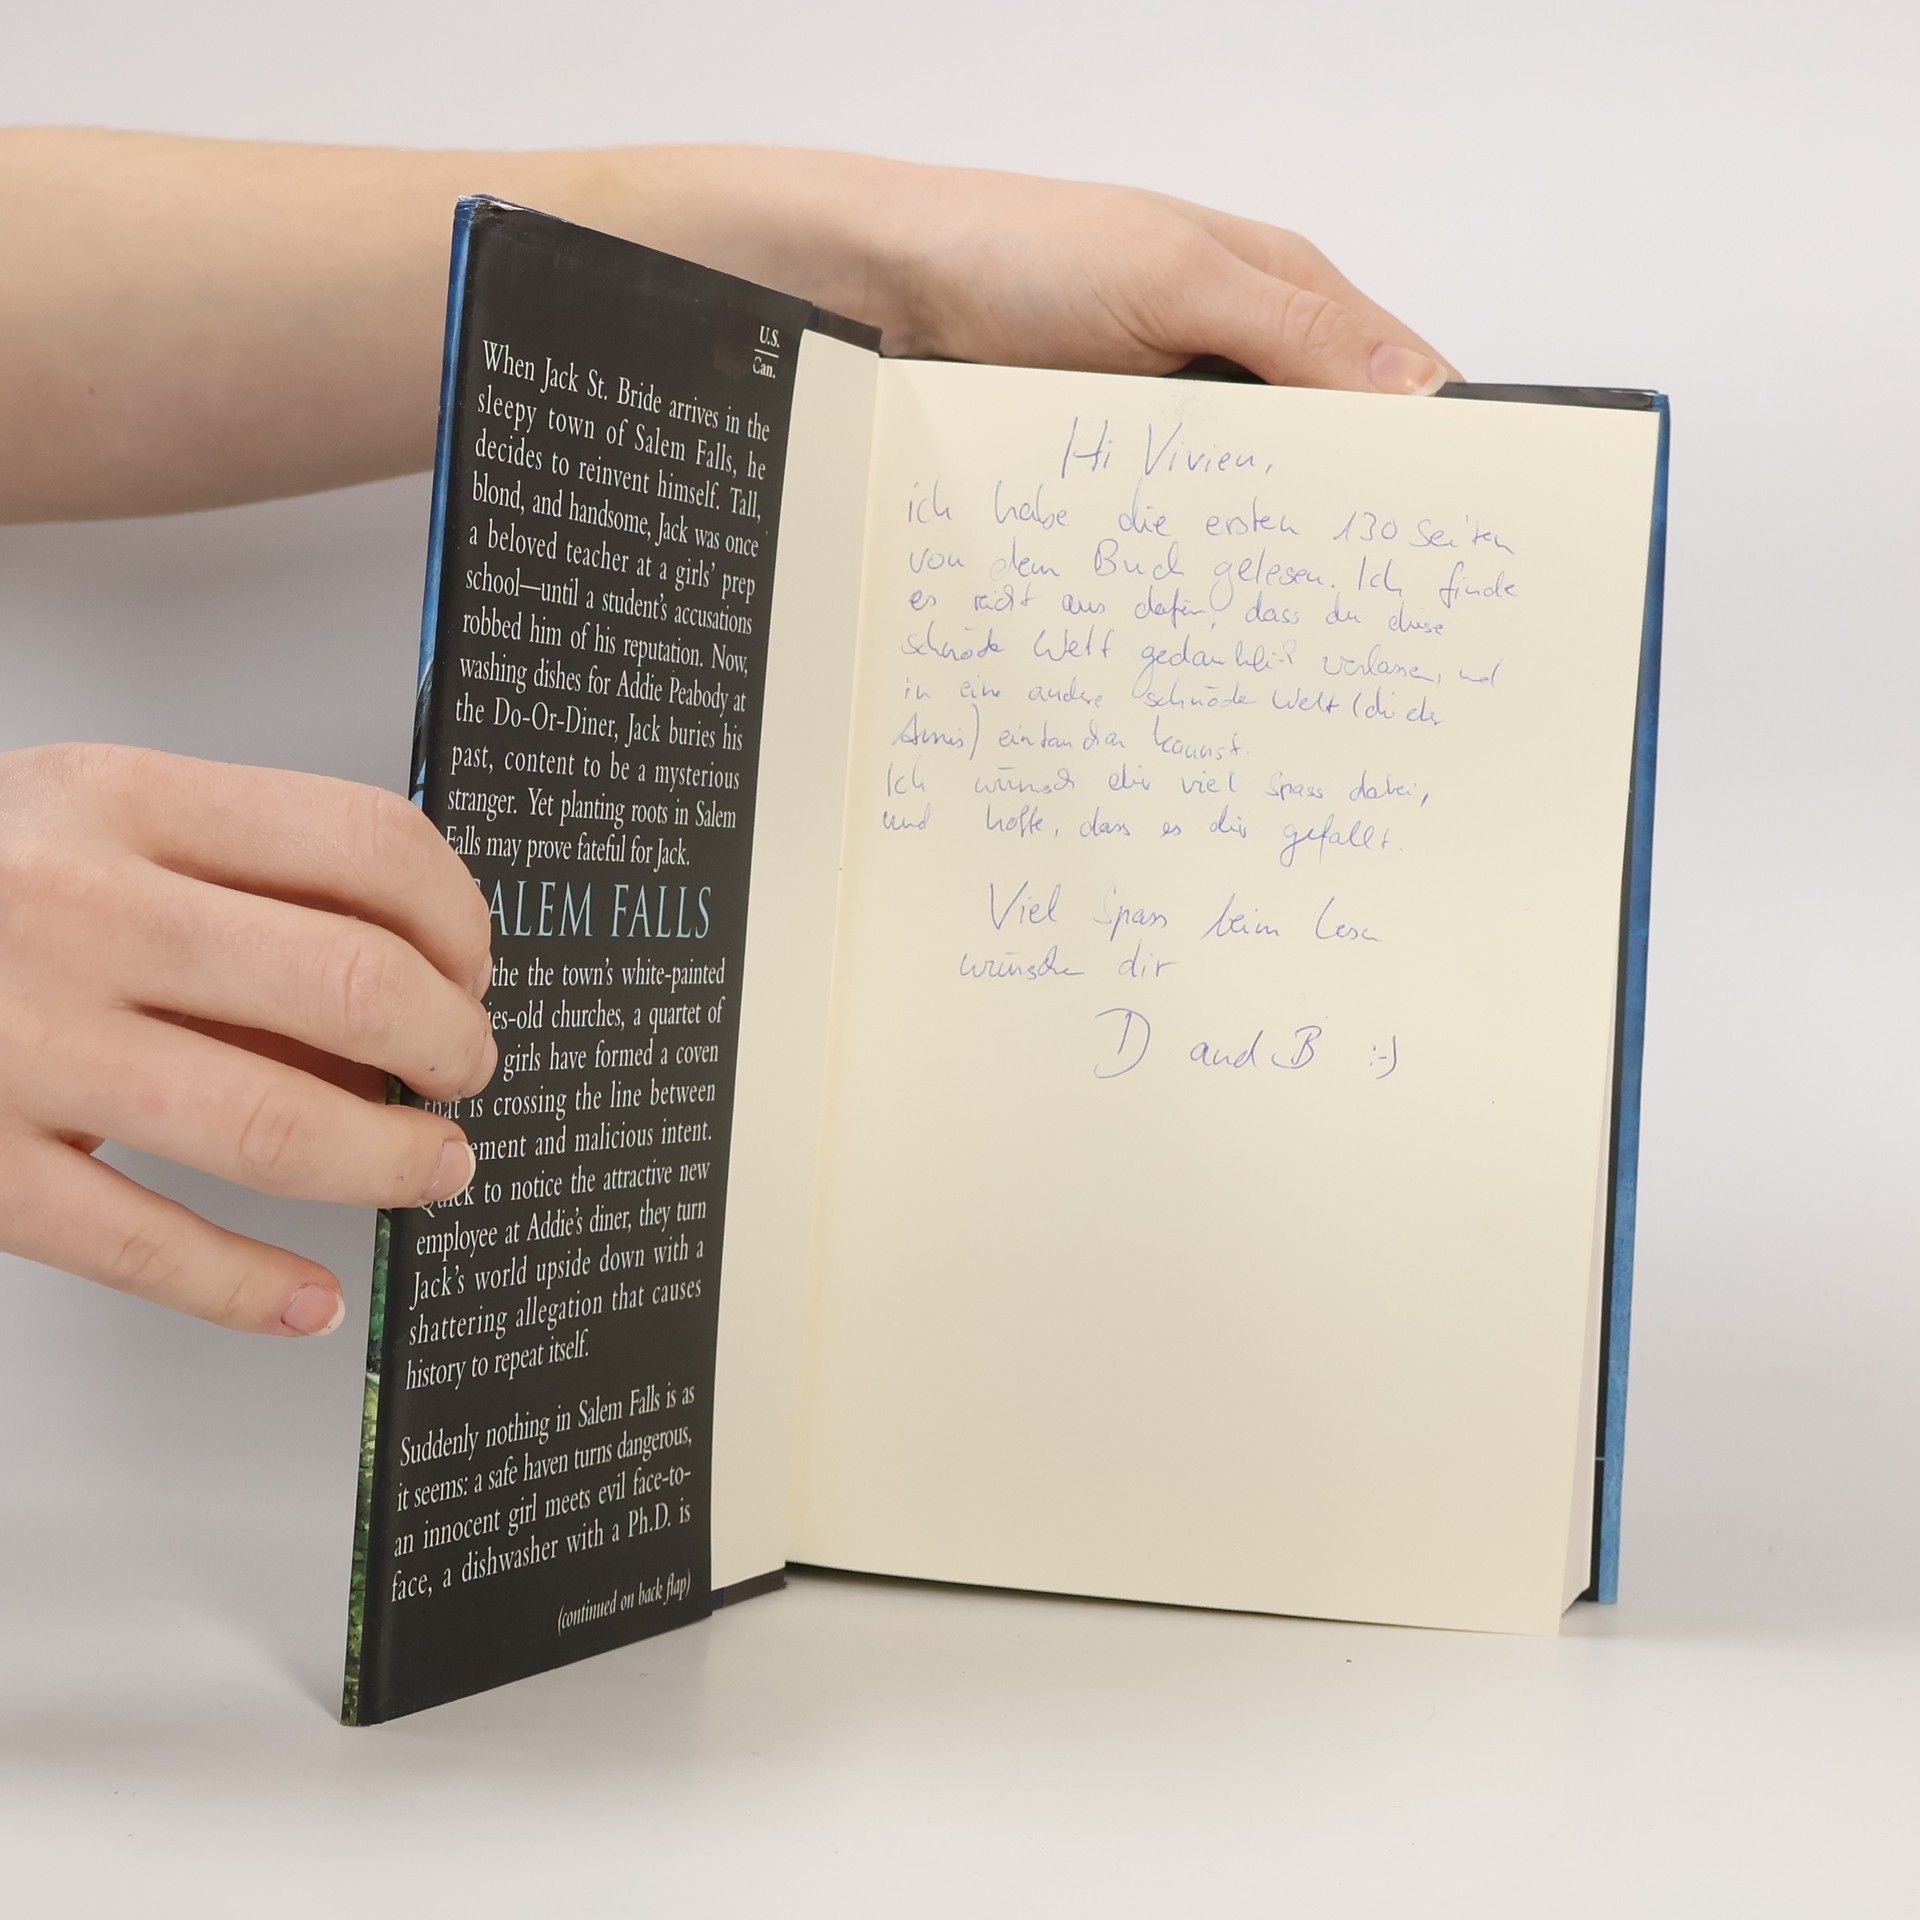 U.S.
Can.
When Jack St. Bride arrives in the
sleepy town of Salem Falls, he
decides to reinvent himself. Tall,
blond, and handsome, Jack was once
a beloved teacher at a girls' prep
school—until a student's accusations
robbed him of his reputation. Now,
washing dishes for Addie Peabody at
the Do-Or-Diner, Jack buries his
past, content to be a mysterious
stranger. Yet planting roots in Salem
Falls may prove fateful for Jack.
ALEM FALLS
the the town's white-painted
ies-old churches, a quartet of
girls have formed a coven
that is crossing the line between
ement and malicious intent.
Quick to notice the attractive new
employee at Addie's diner, they turn
Jack's world upside down with a
shattering allegation that causes
history to repeat itself.
Suddenly nothing in Salem Falls is as
it seems: a safe haven turns dangerous,
an innocent girl meets evil face-to-
face, a dishwasher with a Ph.D. is
(continued on back flap)
Hi Vivien,
ich habe die ersten 130 Seiten
von dem Buch gelesen. Ich finde
es reicht aus dafür, dass du diese
schnöde Welt gedanklich verlassen, und
in eine andere schnöde Welt (die der
Amis) eintauchen kannst.
Ich wünsch dir viel Spass dabei,
und hoffe, dass es dir gefällt.
Viel Spass beim Lesen
wünsche dir
D and B :-)